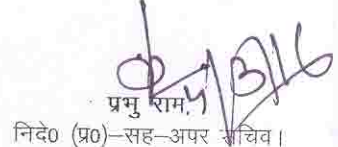 प्रभु राम,
निदे० (प्र०)–सह–अपर सचिव।